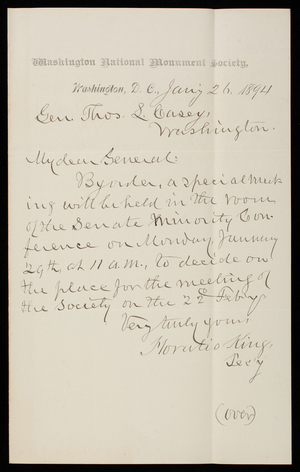 Washington National Monument Society,
Washington, D. C., Jan'y 26, 1894
Gen. Thos. L. Casey,
Washington.
My dear General:
By order, a special meet
ing will be held in the room
of the Senate Minority Con
ference on Monday, January
29th, at 11 a.m., to decide on
the place for the meeting of
the Society on the 22d Feb'y.
Very truly yours,
Horatio King,
Sec'y
(over)